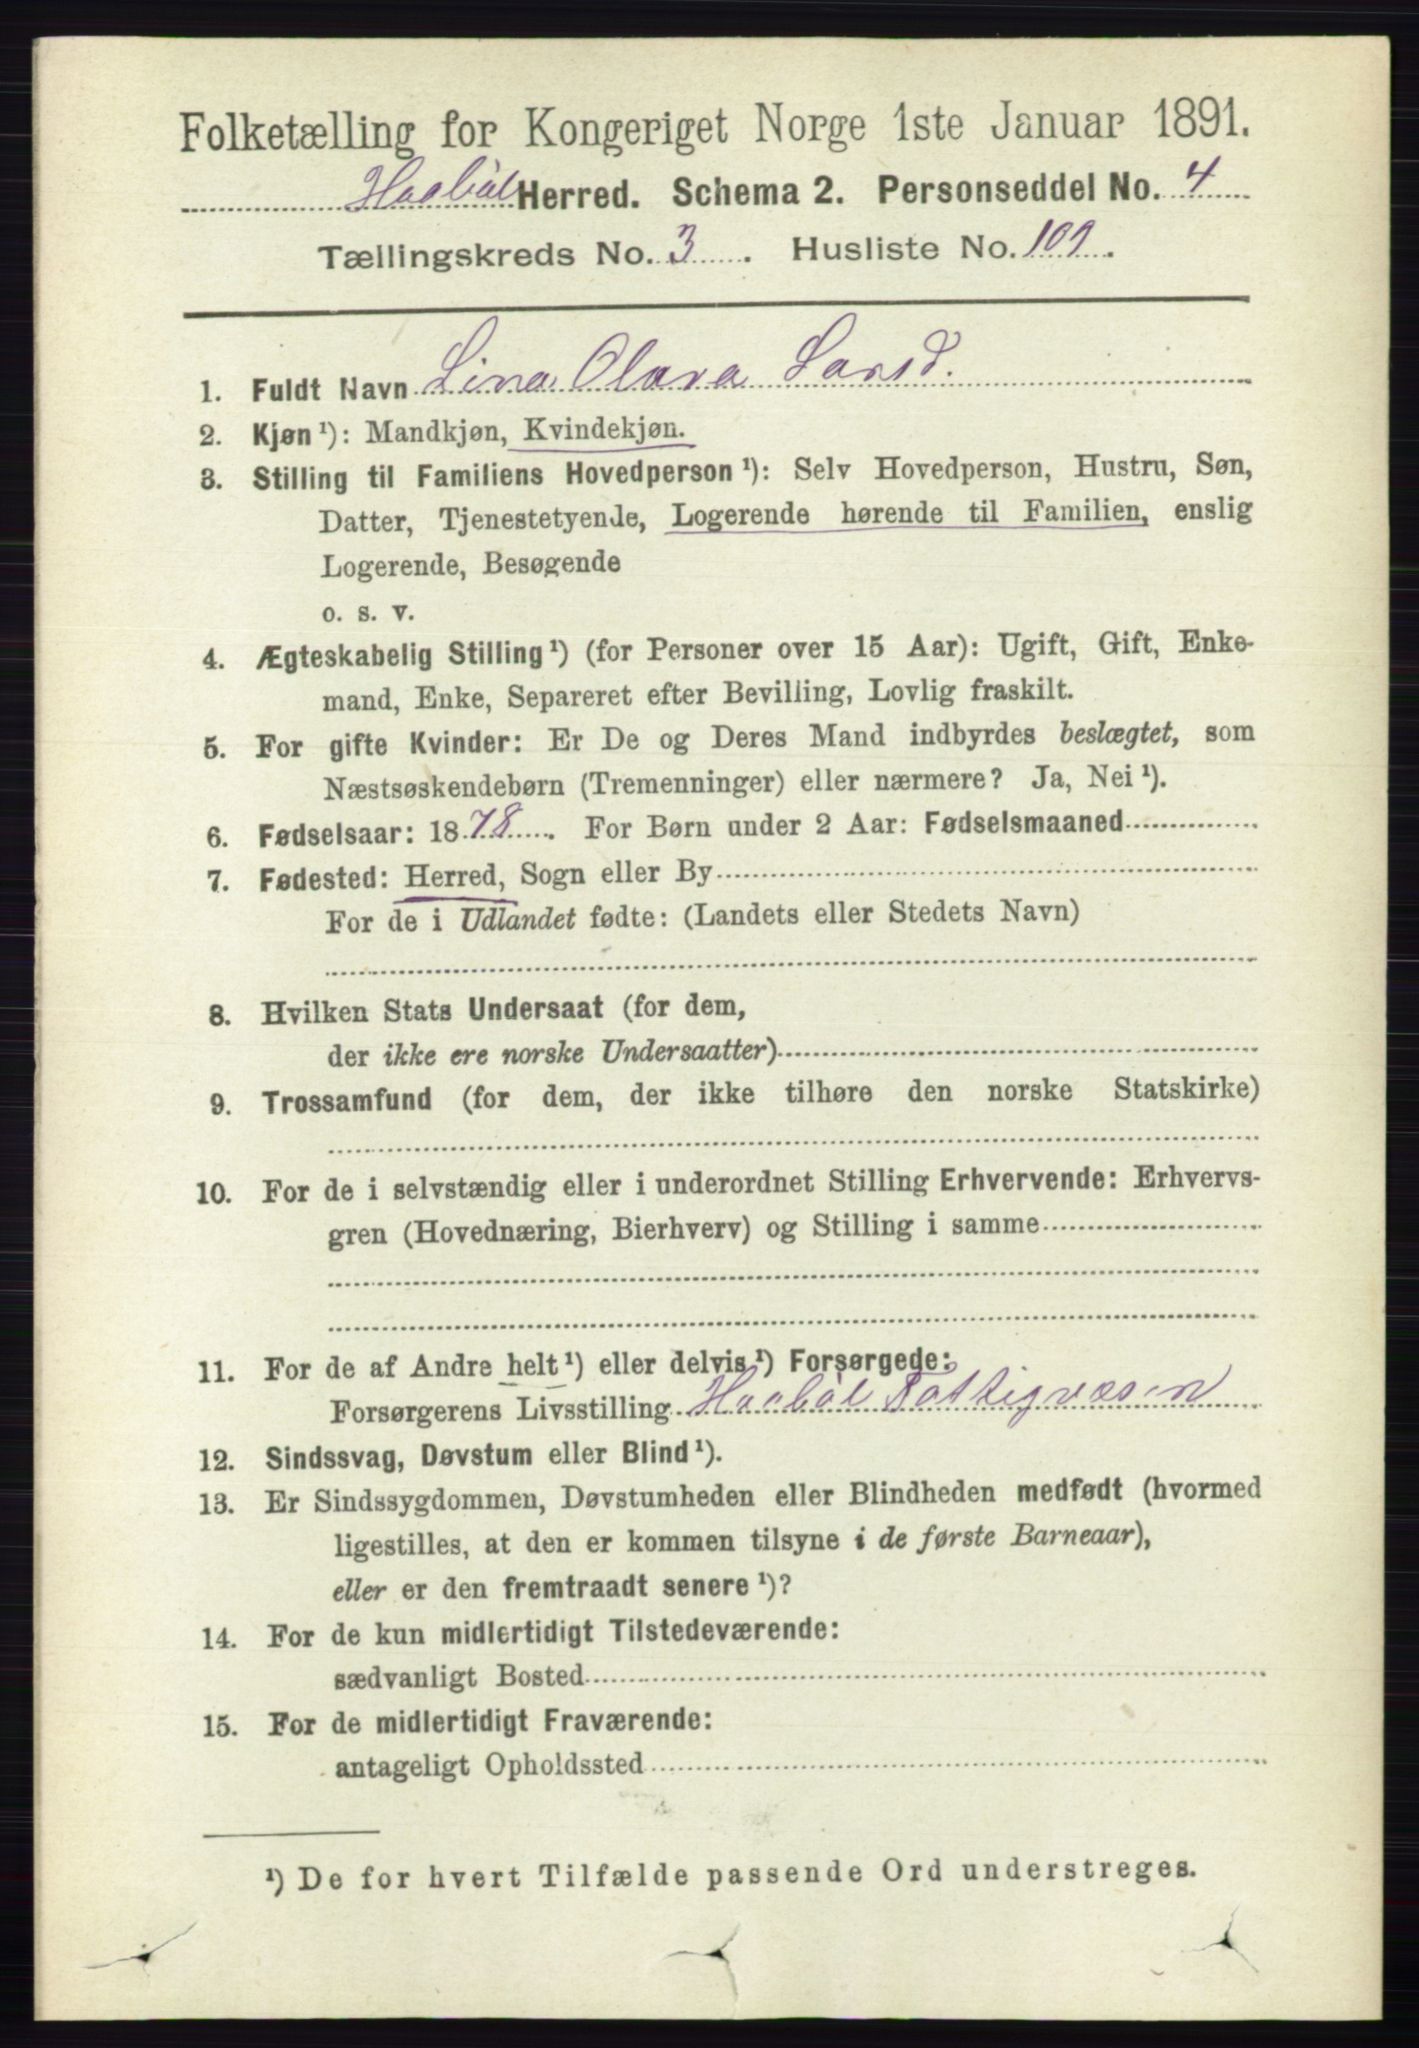 Folketælling for Kongeriget Norge 1ste Januar 1891.
Haabøl Herred. Schema 2. Personseddel No. 4
Tællingskreds No. 3. Husliste No. 109.
1. Fuldt Navn Lina Olava Larsd.
2. Kjøn ¹): Mandkjøn, Kvindekjøn.
3. Stilling til Familiens Hovedperson ¹): Selv Hovedperson, Hustru, Søn,
Datter, Tjenestetyende, Logerende hørende til Familien, enslig
Logerende, Besøgende
o. s. v.
4. Ægteskabelig Stilling ¹) (for Personer over 15 Aar): Ugift, Gift, Enke-
mand, Enke, Separeret efter Bevilling, Lovlig fraskilt.
5. For gifte Kvinder: Er De og Deres Mand indbyrdes beslægtet, som
Næstsøskendebørn (Tremenninger) eller nærmere? Ja, Nei ¹).
6. Fødselsaar: 1878. For Børn under 2 Aar: Fødselsmaaned
7. Fødested: Herred, Sogn eller By
For de i Udlandet fødte: (Landets eller Stedets Navn)
8. Hvilken Stats Undersaat (for dem,
der ikke ere norske Undersaatter)
9. Trossamfund (for dem, der ikke tilhøre den norske Statskirke)
10. For de i selvstændig eller i underordnet Stilling Erhvervende: Erhvervs-
gren (Hovednæring, Bierhverv) og Stilling i samme
11. For de af Andre helt ¹) eller delvis ¹) Forsørgede:
Forsørgerens Livsstilling Haabøl Fattigvæsen
12. Sindssvag, Døvstum eller Blind ¹).
13. Er Sindssygdommen, Døvstumheden eller Blindheden medfødt (hvormed
ligestilles, at den er kommen tilsyne i de første Barneaar),
eller er den fremtraadt senere ¹)?
14. For de kun midlertidigt Tilstedeværende:
sædvanligt Bosted
15. For de midlertidigt Fraværende:
antageligt Opholdssted
¹) De for hvert Tilfælde passende Ord understreges.